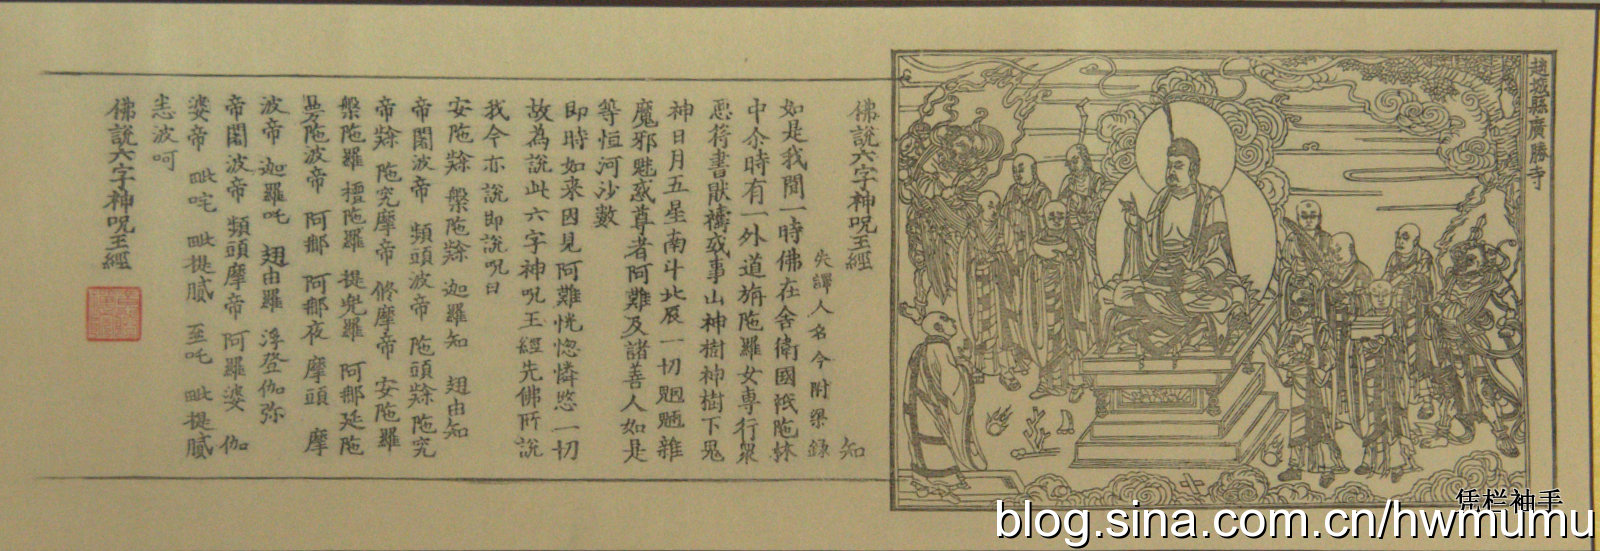 趙城縣廣勝寺
佛說六字神呪王經
失譯人名今附梁錄 知
如是我聞一時佛在舍衛國祇陁林
中尒時有一外道旃陁羅女專行衆
惡符書厭禱或事山神樹神樹下鬼
神日月五星南斗北辰一切魍魎雜
魔邪魅惑尊者阿難及諸善人如是
等恒河沙數
即時如来因見阿難恍惚憐愍一切
故為說此六字神呪王經先佛所說
我今亦說即說呪曰
安陁隸 槃陁隸 迦羅知 翅由知
帝闍波帝 頻頭波帝 陁頭隸陁究
帝隸 陁究摩帝 修摩帝 安陁羅
槃陁羅 擅陁羅 提兜羅 阿那延陁
陁波帝 阿那 阿那夜 摩頭 摩
波帝 迦羅吒 翅由羅 浮登伽弥
帝闍波帝 頻頭摩帝 阿羅婆 伽
婆帝 毗咤 毗提膩 至吒 毗提膩
恙波呵
佛說六字神呪王經
凭栏袖手
blog.sina.com.cn/hwmumu